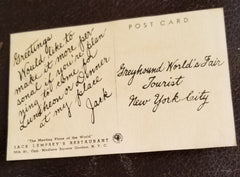 POST CARD
Greetings
Would like to
make it more per
sonal if you're plan
ning to come for
Luncheon or Dinner
at my place
Jack
Greyhound World's Fair
Tourist
New York City
"The Meeting Place of the World"
JACK DEMPSEY'S RESTAURANT
50th St. Opp. Madison Square Garden, N.Y.C.